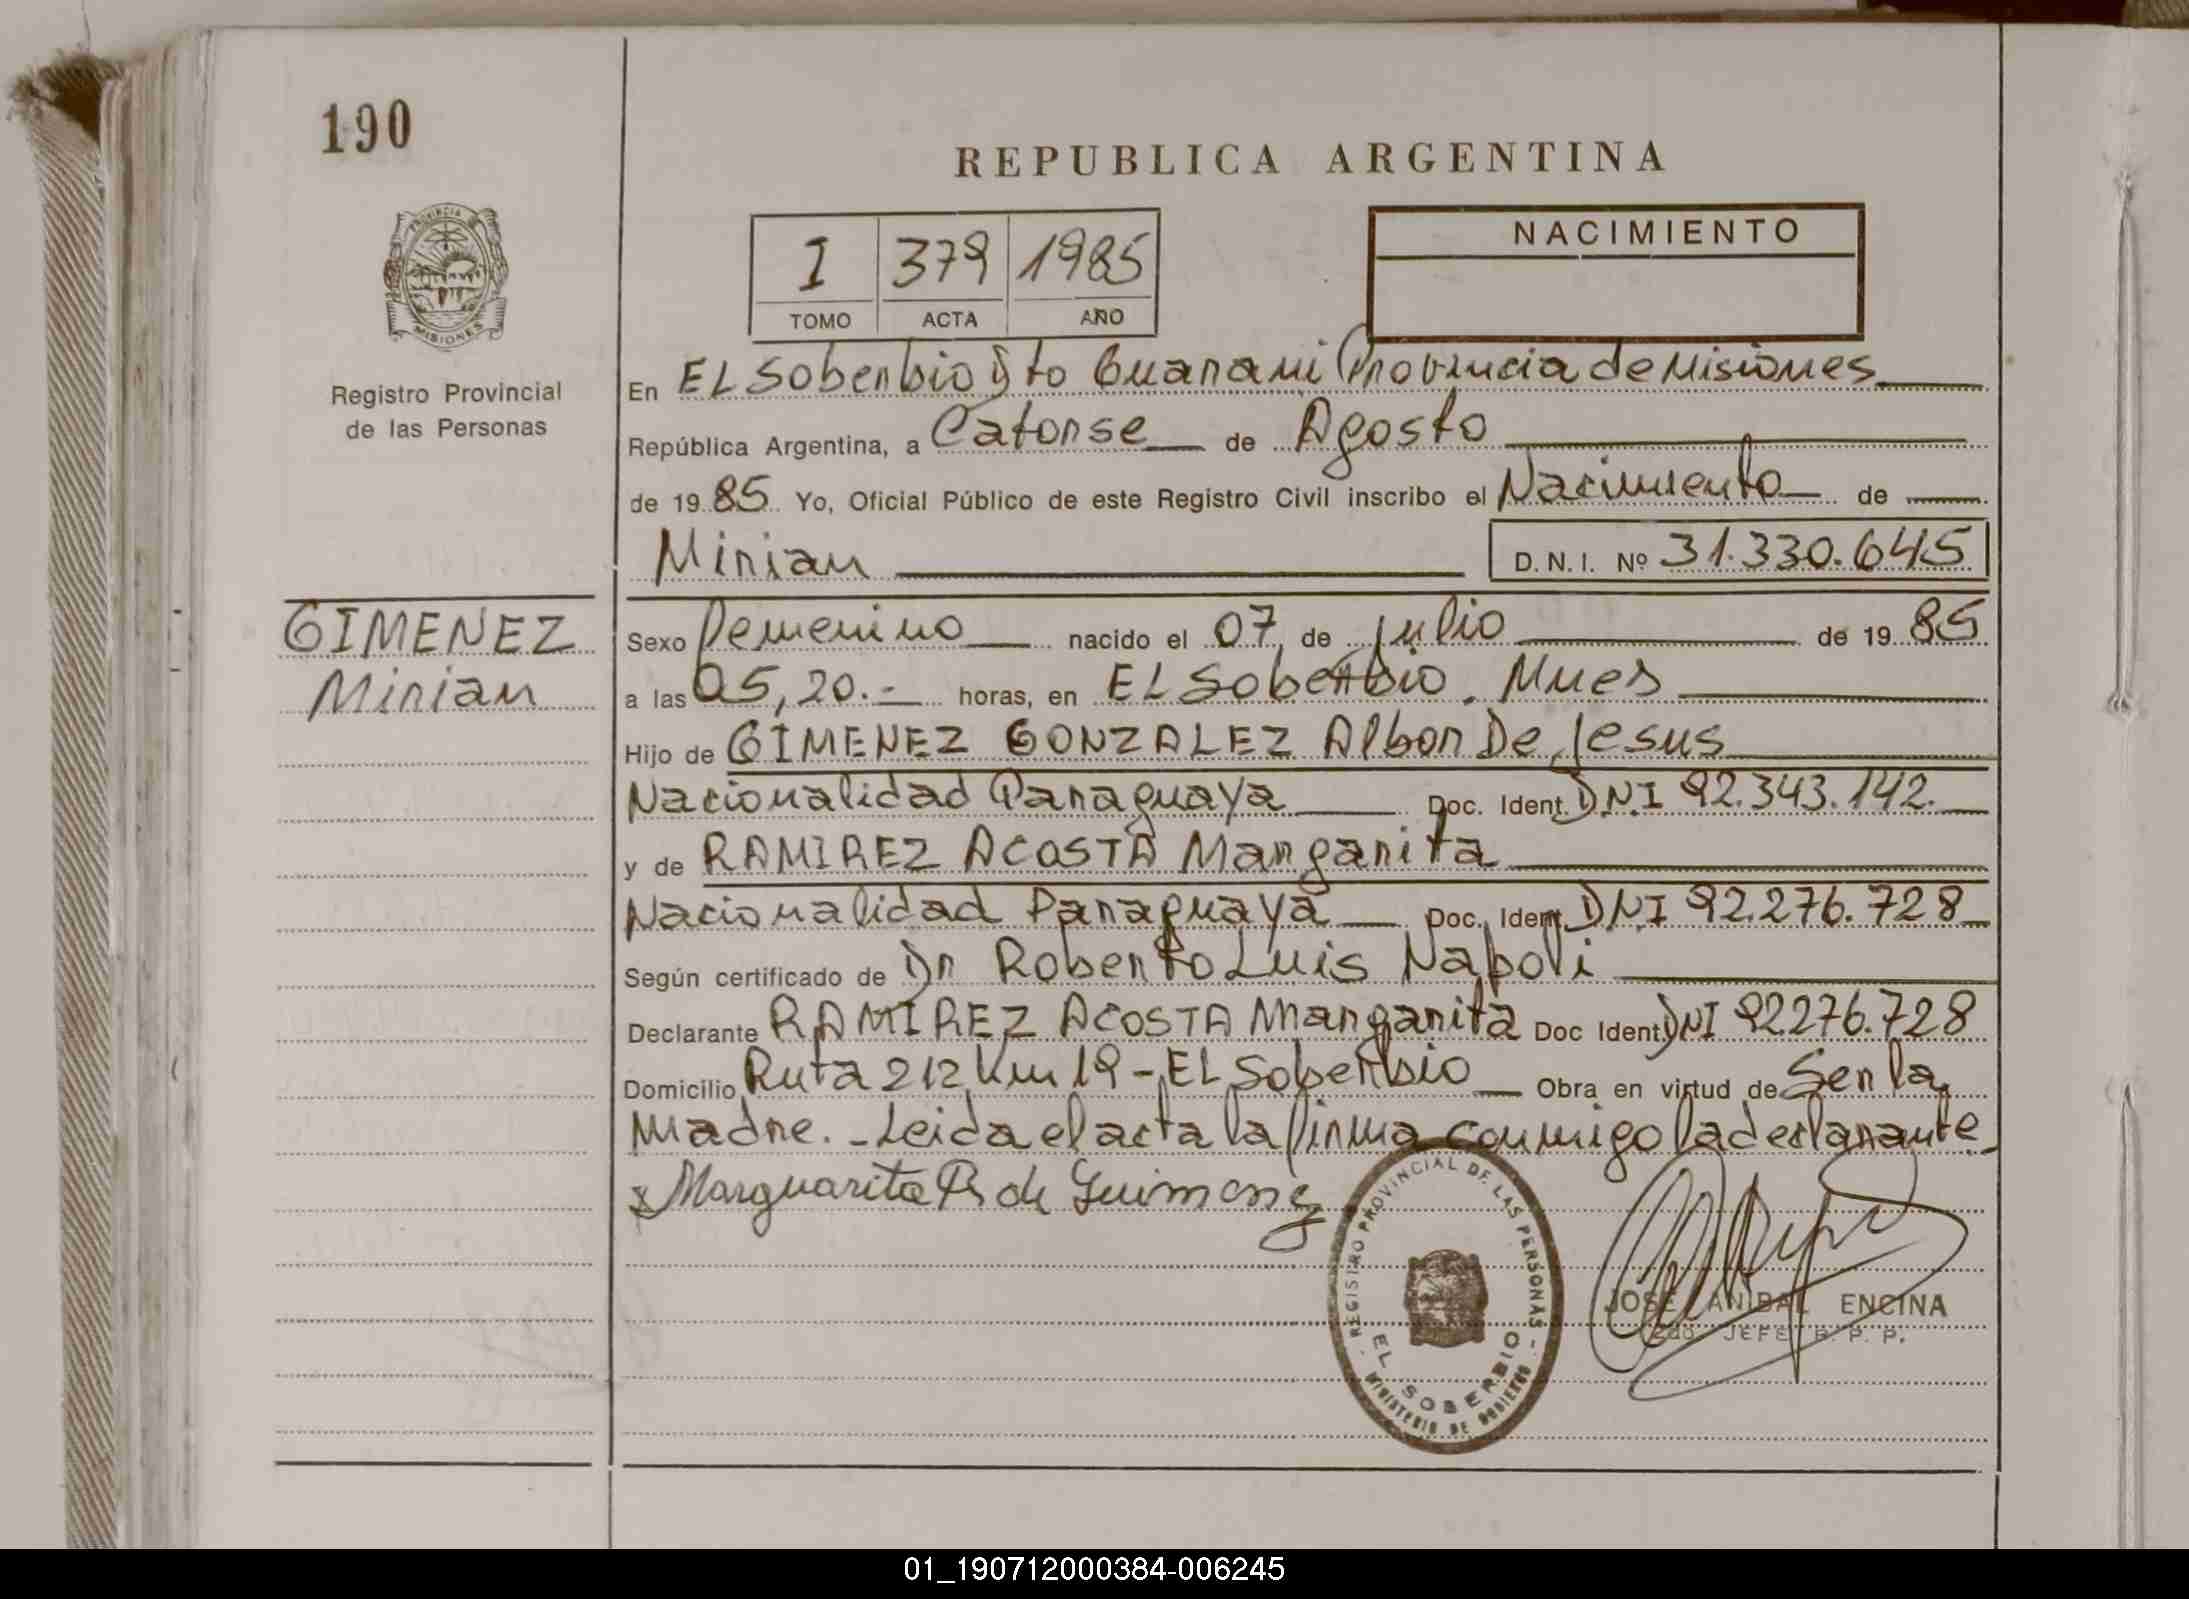 190
REPUBLICA ARGENTINA
PROVINCIA DE
MISIONES
Registro Provincial
de las Personas
I 379 1985
TOMO ACTA AÑO
NACIMIENTO
En EL Soberbio Dto Guarani Provincia de Misiones
República Argentina, a Catorse de Agosto
de 1985 Yo, Oficial Público de este Registro Civil inscribo el Nacimiento de
Mirian D. N. I. Nº 31.330.645
GIMENEZ
Mirian
Sexo Femenino nacido el 07 de julio de 1985
a las 05,20.- horas, en EL Soberbio. Mnes
Hijo de GIMENEZ GONZALEZ Albor De Jesus
Nacionalidad Paraguaya Doc. Ident. DNI 92.343.142.
y de RAMIREZ ACOSTA Margarita
Nacionalidad Paraguaya Doc. Ident. DNI 92.276.728
Según certificado de Dr Roberto Luis Napoli
Declarante RAMIREZ ACOSTA Margarita Doc Ident. DNI 92.276.728
Domicilio Ruta 212 Km 19 - EL Soberbio Obra en virtud de Ser la
Madre. - Leida el acta la firma conmigo la declarante
x Marguarita R de Guimenez
REGISTRO PROVINCIAL DE LAS PERSONAS
EL SOBERBIO
MINISTERIO DE GOBIERNO
JOSE ANIBAL ENCINA
2do. JEFE R. P. P.
01_190712000384-006245